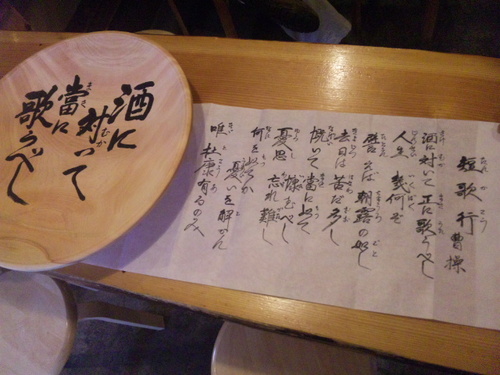 酒に
対いて
當に
歌うべし
短歌行 曹操
酒に対いて 正に歌うべし
人生 幾何ぞ
譬えば 朝露の如し
去日は 苦だ多し
慨いて 當に以て
慷すべし
憂思 忘れ難し
何を以てか
憂いを解かん
唯 杜康有るのみ